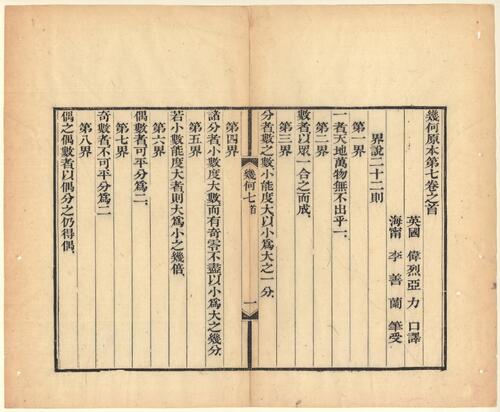 幾何原本第七卷之首
英國 偉烈亞力 口譯
海甯 李善蘭 筆受
界說二十二則
第一界
一者天地萬物無不出乎一
第二界
數者以眾一合之而成
第三界
分者數之數小能度大以小為大之一分
幾何七首
一
第四界
諸分者小數度大數而有奇零不盡以小為大之幾分
第五界
若小數能度大者則大為小之幾倍
第六界
偶數者可平分為二
第七界
奇數者不可平分為二
第八界
偶之偶數者以偶分之仍得偶